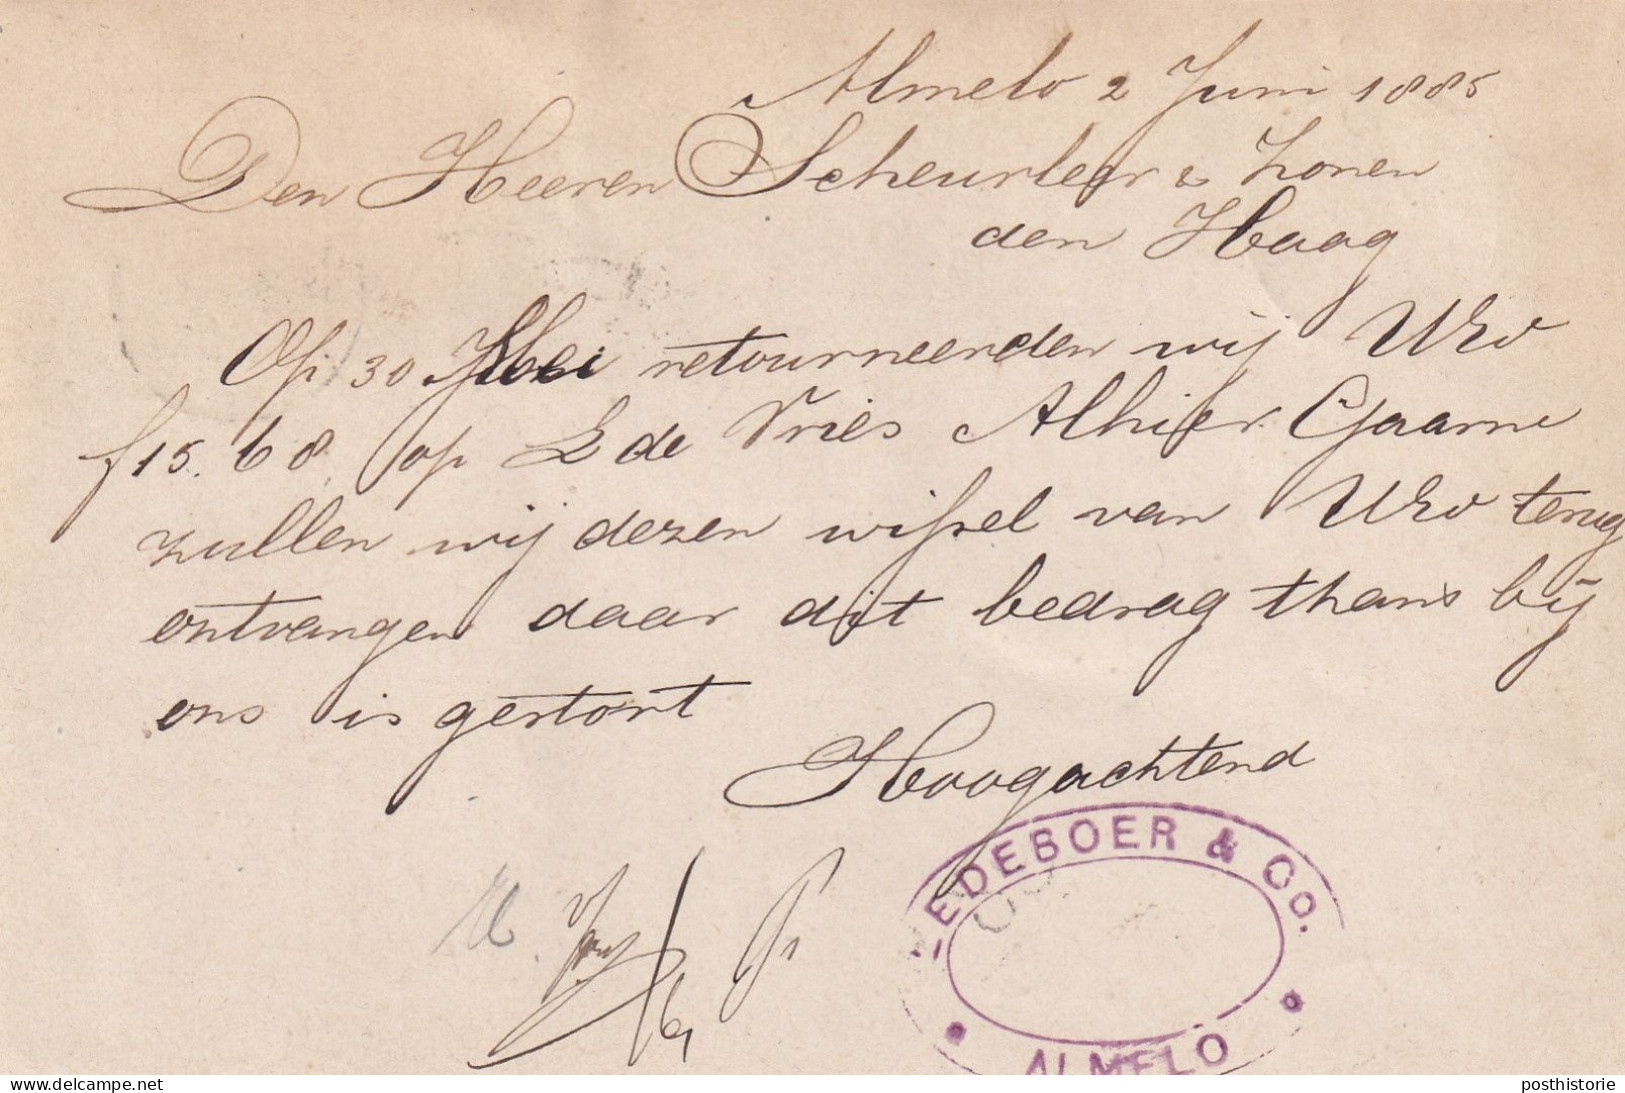 Almelo 2 Juni 1885
Den Heeren Scheurleer & Zonen
den Haag
Op 30 Mei retourneerden wij UEd
f 15.68 op L de Vries Alhier Gaarne
zullen wij dezen wissel van UEd terug
ontvangen daar dit bedrag thans bij
ons is gestort
Hoogachtend
LEDEBOER & Co.
ALMELO
www.delcampe.net
posthistorie